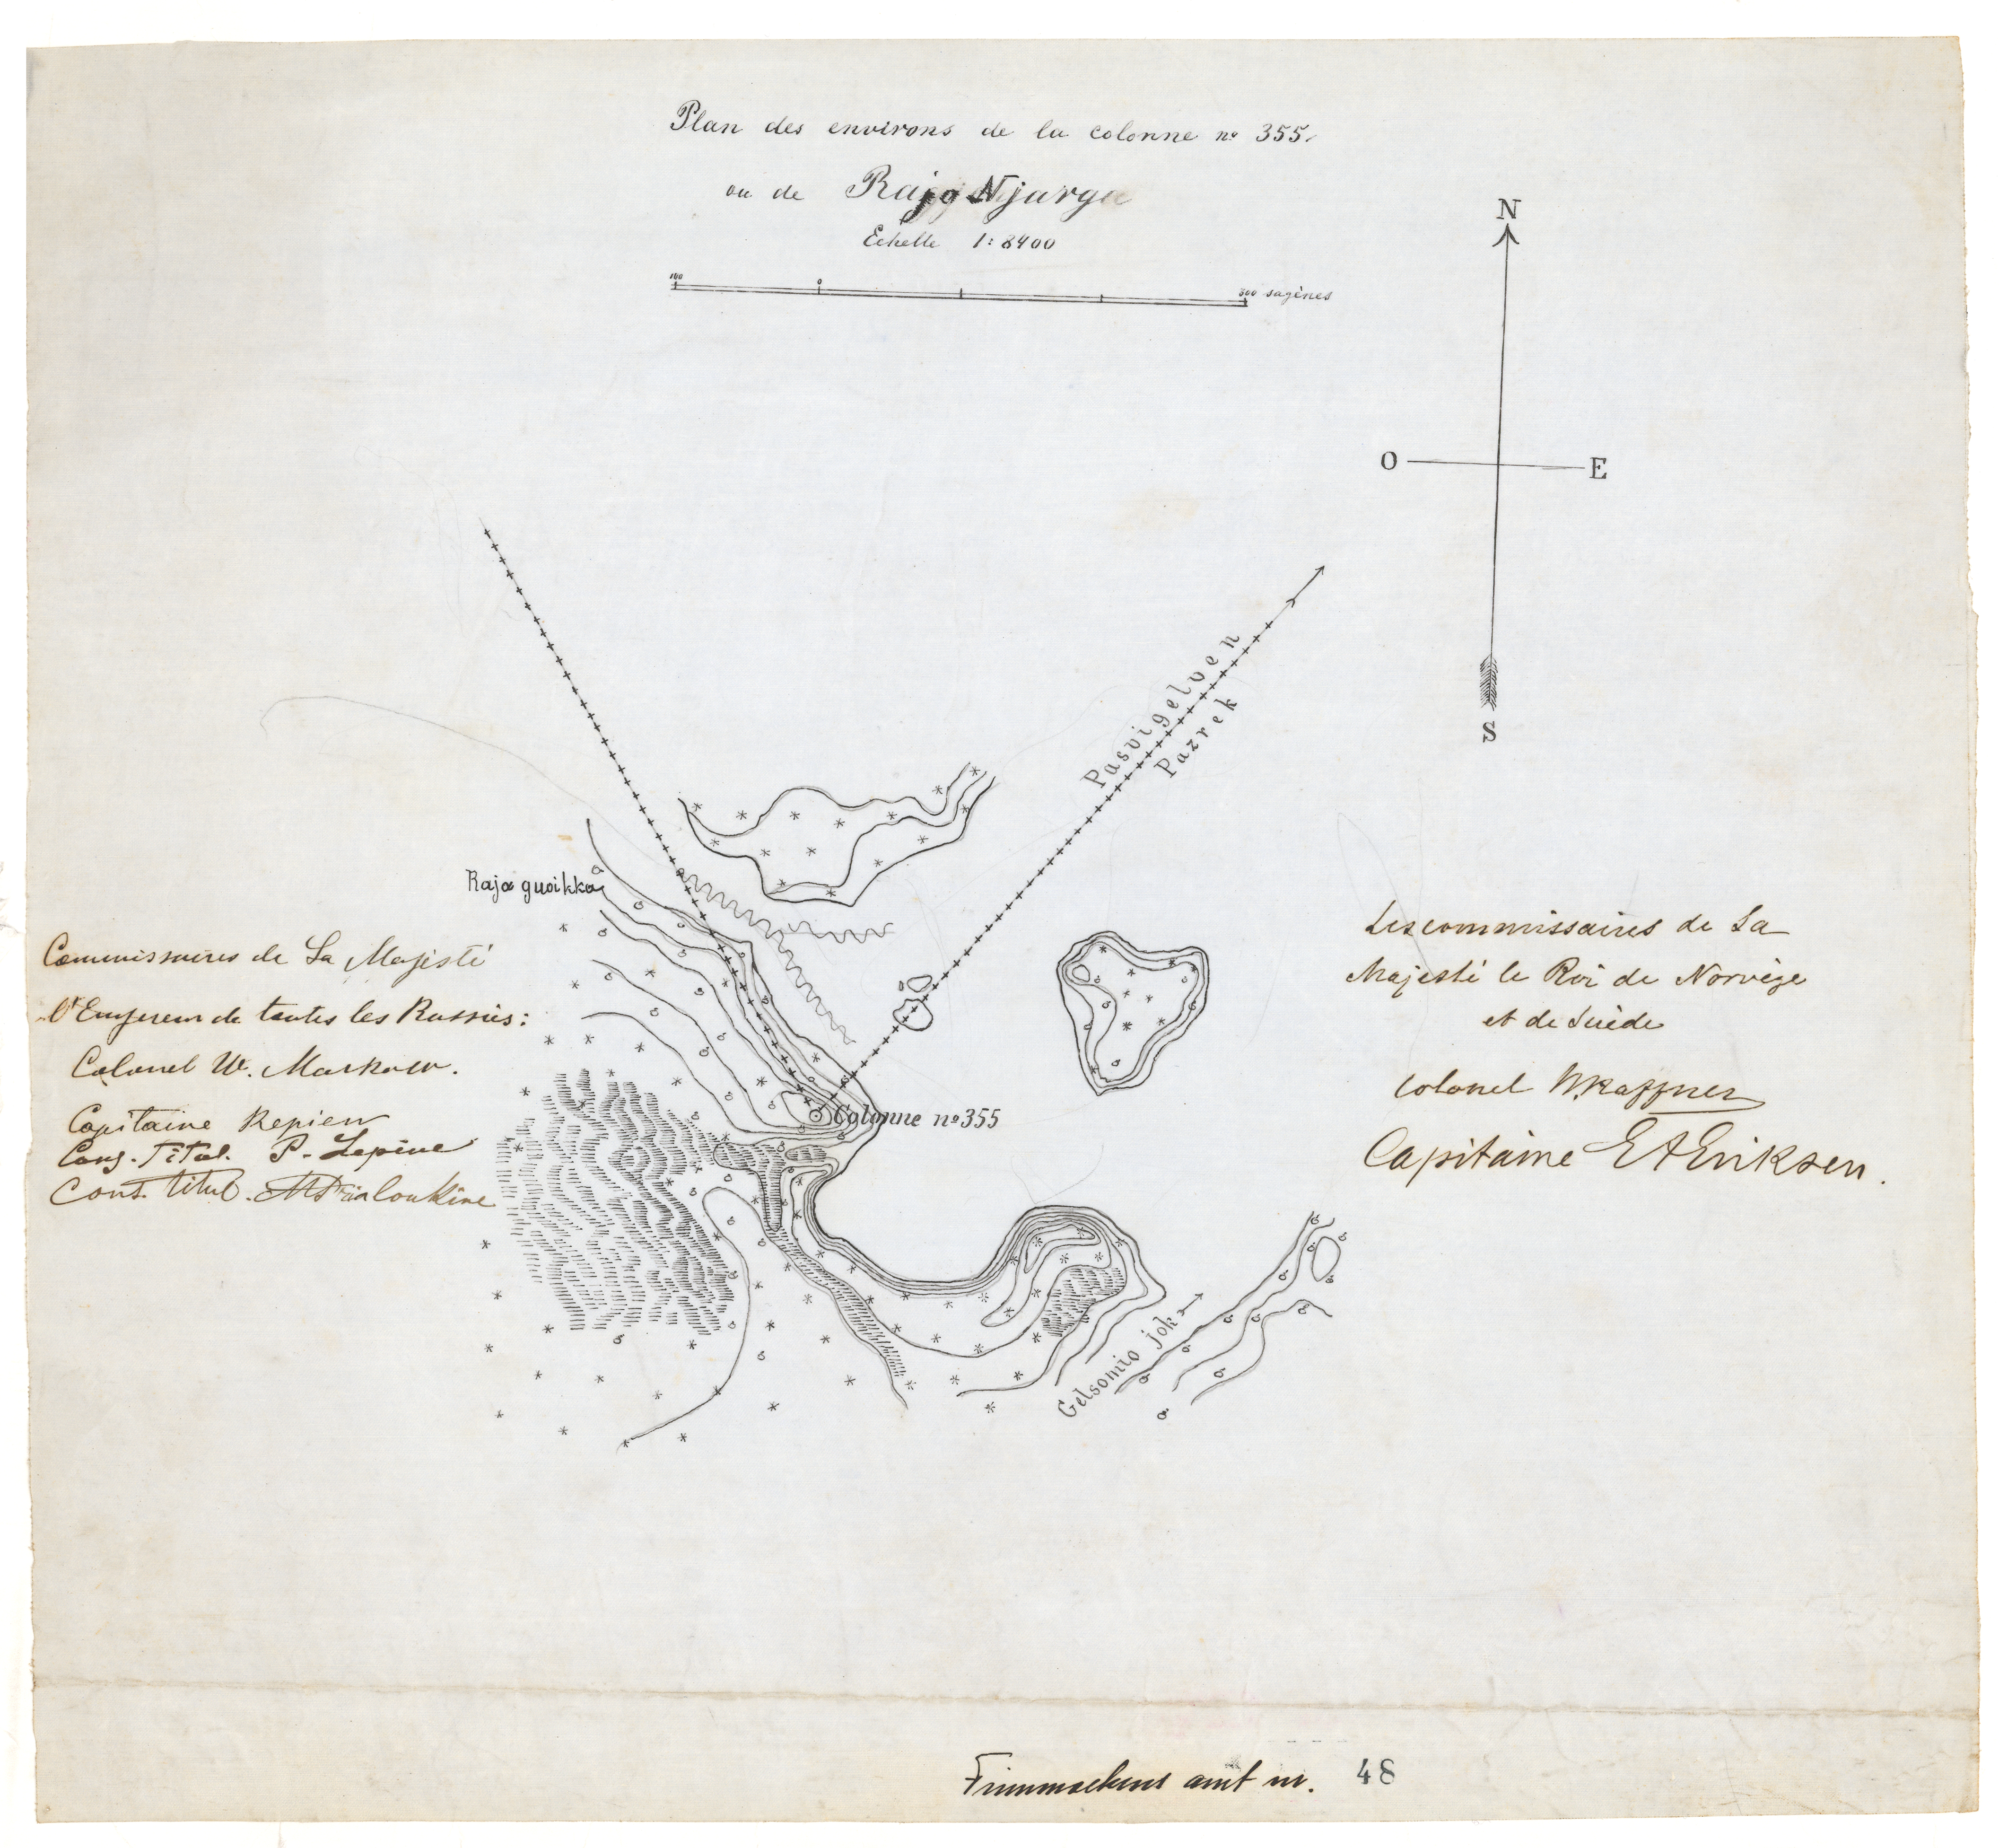 Plan des environs de la colonne nº 355.
ou de Rajg Njarga
Echelle 1:8400
100 0 300 sagènes
N
O E
S
Pasvigelven
Pazrek
Raja guoikka
Colonne nº 355
Gelsomio jok
Commissaires de Sa Majesté
l'Empereur de toutes les Russies:
Colonel W. Markow.
Capitaine Repiew
Cons. Titul. P. Lepine
Cons. titul.
Les commissaires de Sa
Majesté le Roi de Norvège
et de Suède
Colonel
Capitaine E A Eriksen.
Finmarkens amt nr. 48